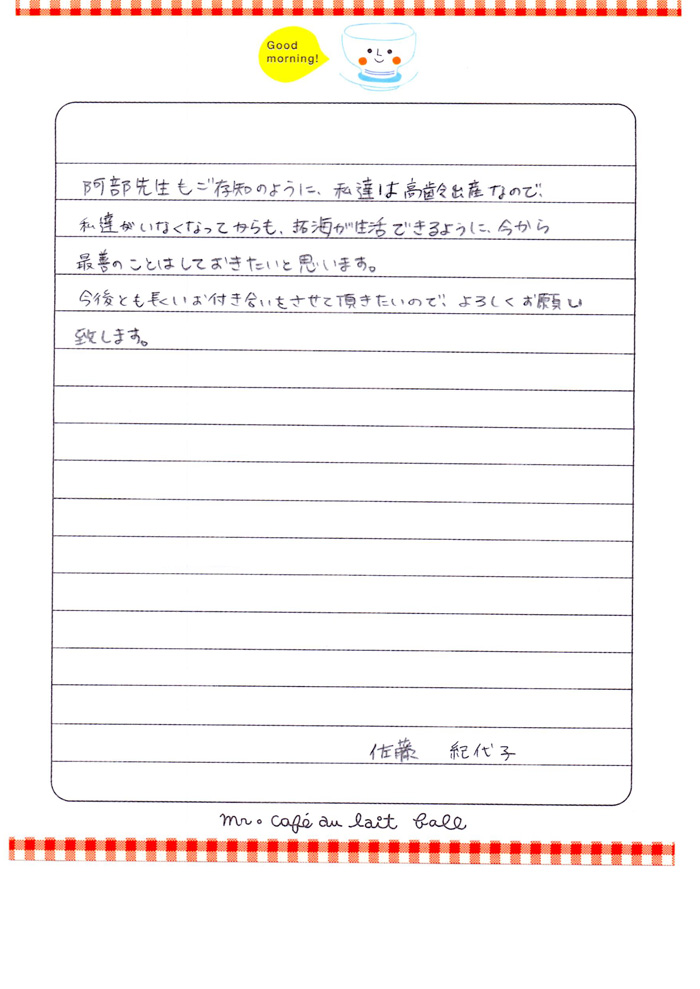 Good
morning!
阿部先生もご存知のように、私達は高齢出産なので、
私達がいなくなってからも、拓海が生活できるように、今から
最善のことはしておきたいと思います。
今後とも長いお付き合いをさせて頂きたいので、よろしくお願い
致します。
佐藤 紀代子
mr. café au lait ball